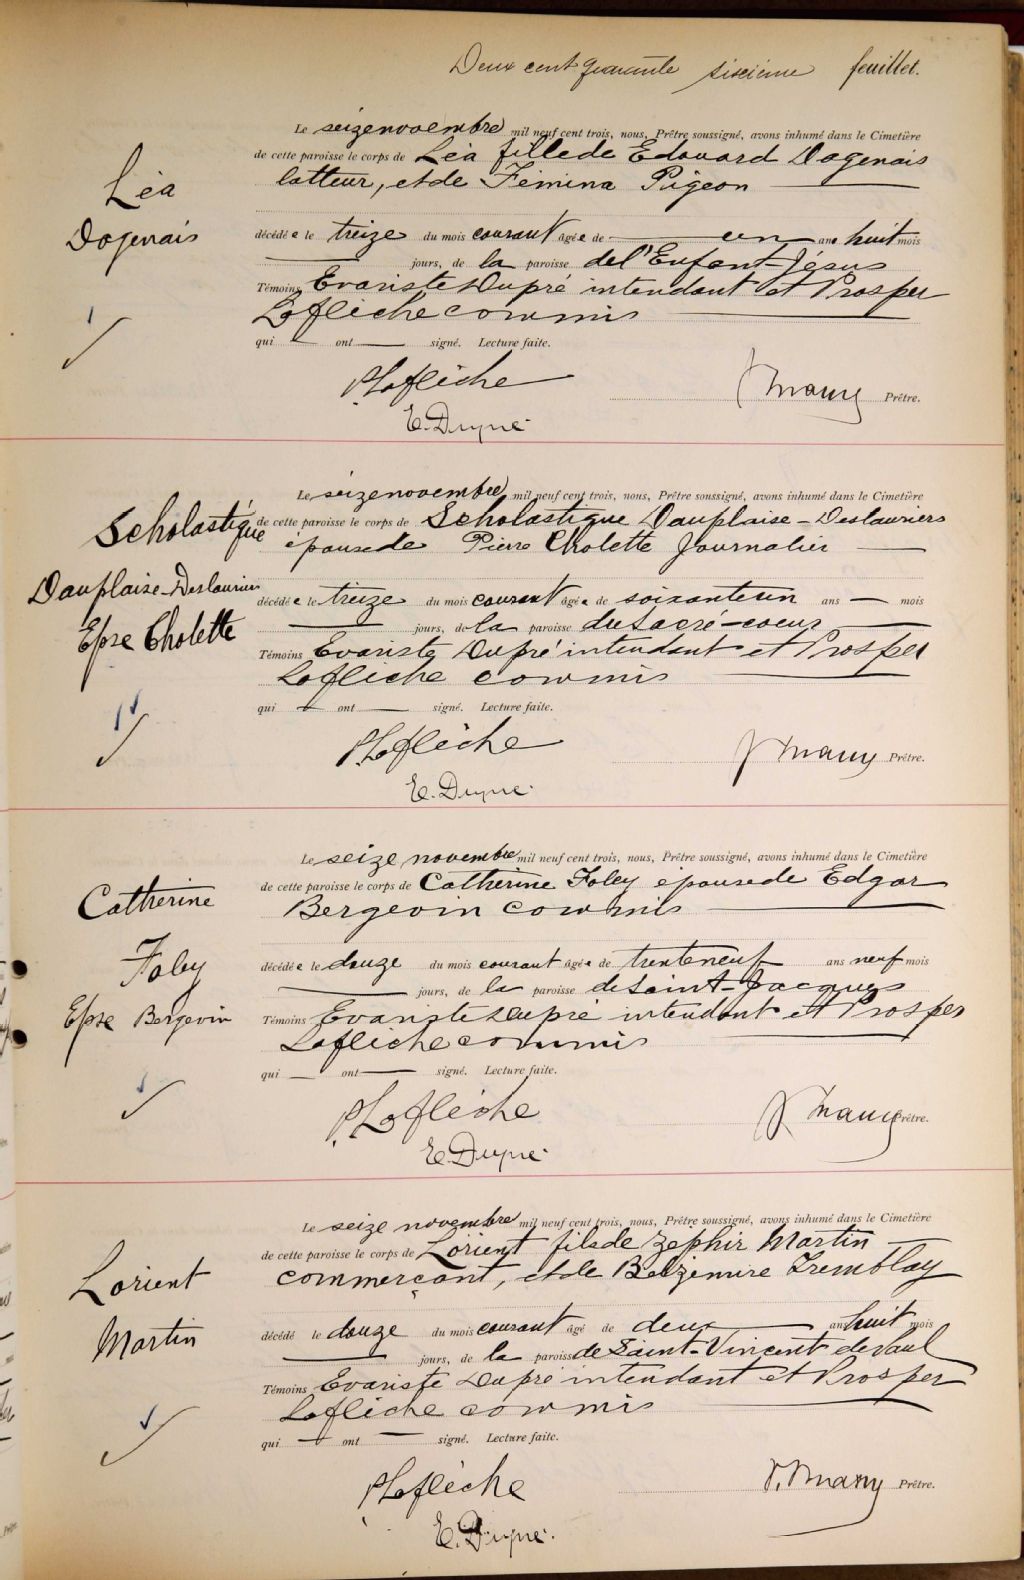 Deux cent quarante sixième feuillet.
Le seize novembre mil neuf cent trois, nous, Prêtre soussigné, avons inhumé dans le Cimetière
de cette paroisse le corps de Léa fille de Edouard Dagenais
latteur, et de Fémina Pigeon
Léa
Dagenais
décédée le treize du mois courant âgée de un ans huit mois
jours, de la paroisse de l'Enfant-Jésus
Témoins Evariste Dupré intendant et Prosper
Laflèche commis
qui ont signé. Lecture faite.
P. Laflèche
Prêtre.
E. Dupré
Le seize novembre mil neuf cent trois, nous, Prêtre soussigné, avons inhumé dans le Cimetière
de cette paroisse le corps de Scholastique Dauplaise-Deslauriers
épouse de Pierre Cholette Journalier
Scholastique
Dauplaise-Deslauriers
Epse Cholette
décédée le treize du mois courant âgée de soixante un ans mois
jours, de la paroisse du Sacré-coeur
Témoins Evariste Dupré intendant et Prosper
Laflèche commis
qui ont signé. Lecture faite.
P. Laflèche
Prêtre.
E. Dupré
Le seize novembre mil neuf cent trois, nous, Prêtre soussigné, avons inhumé dans le Cimetière
de cette paroisse le corps de Catherine Foley épouse de Edgar
Bergevin commis
Catherine
Foley
Epse Bergevin
décédée le douze du mois courant âgée de trente neuf ans neuf mois
jours, de la paroisse de Saint-Jacques
Témoins Evariste Dupré intendant et Prosper
Laflèche commis
qui ont signé. Lecture faite.
P. Laflèche
Prêtre.
E. Dupré
Le seize novembre mil neuf cent trois, nous, Prêtre soussigné, avons inhumé dans le Cimetière
de cette paroisse le corps de Lorient fils de Zéphir Martin
commerçant, et de Belzémire Tremblay
Lorient
Martin
décédé le douze du mois courant âgé de deux ans huit mois
jours, de la paroisse de Saint-Vincent de Paul
Témoins Evariste Dupré intendant et Prosper
Laflèche commis
qui ont signé. Lecture faite.
P. Laflèche
Prêtre.
E. Dupré